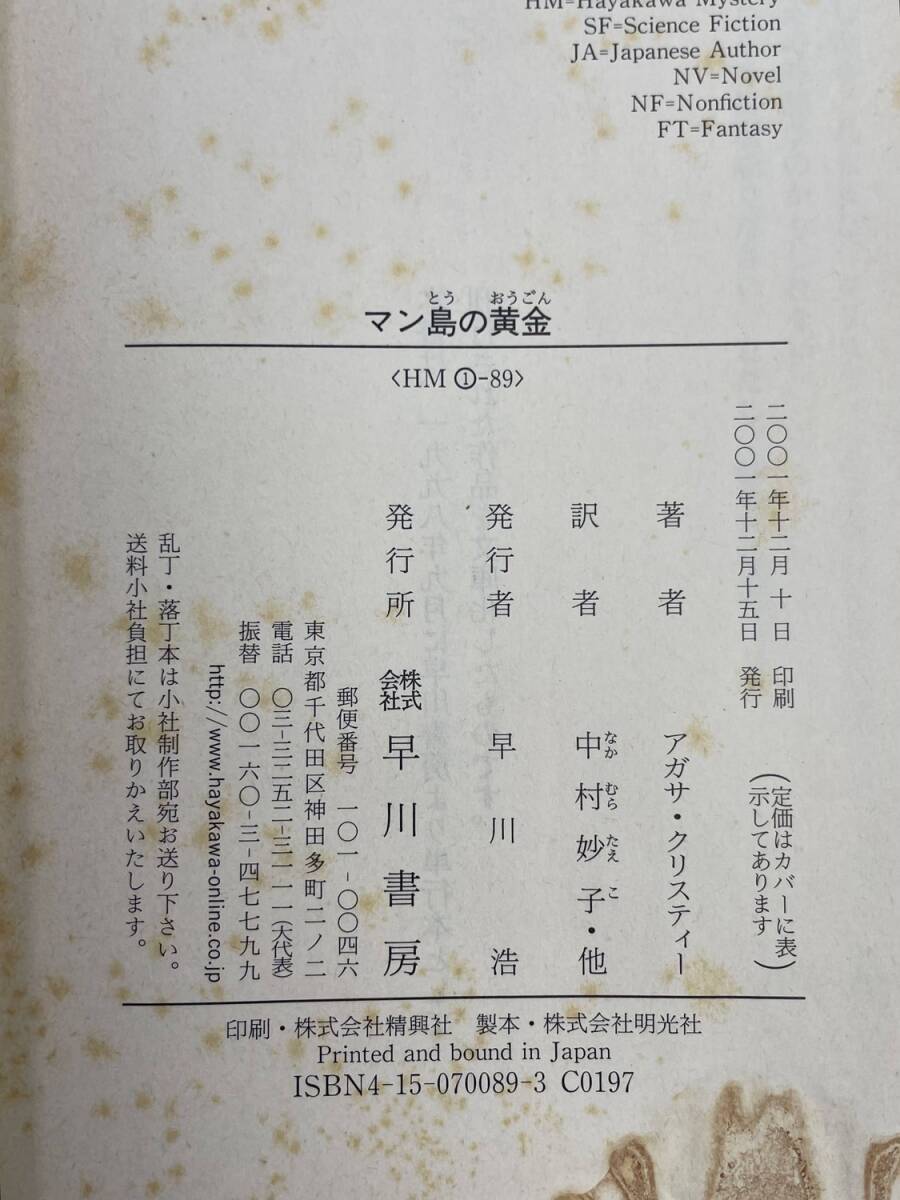 HM=Hayakawa Mystery
SF=Science Fiction
JA=Japanese Author
NV=Novel
NF=Nonfiction
FT=Fantasy
とう おうごん
マン島の黄金
〈HM①-89〉
二〇〇一年十二月 十 日 印刷
二〇〇一年十二月十五日 発行
(定価はカバーに表
示してあります)
著者 アガサ・クリスティー
訳者 中村妙子・他
なか むら たえ こ
発行者 早川 浩
発行所 株式会社 早川書房
郵便番号 一〇一-〇〇四六
東京都千代田区神田多町二ノ二
電話 〇三-三二五二-三一一一(大代表)
振替 〇〇一六〇-三-四七七九九
http://www.hayakawa-online.co.jp
乱丁・落丁本は小社制作部宛お送り下さい。
送料小社負担にてお取りかえいたします。
印刷・株式会社精興社 製本・株式会社明光社
Printed and bound in Japan
ISBN4-15-070089-3 C0197